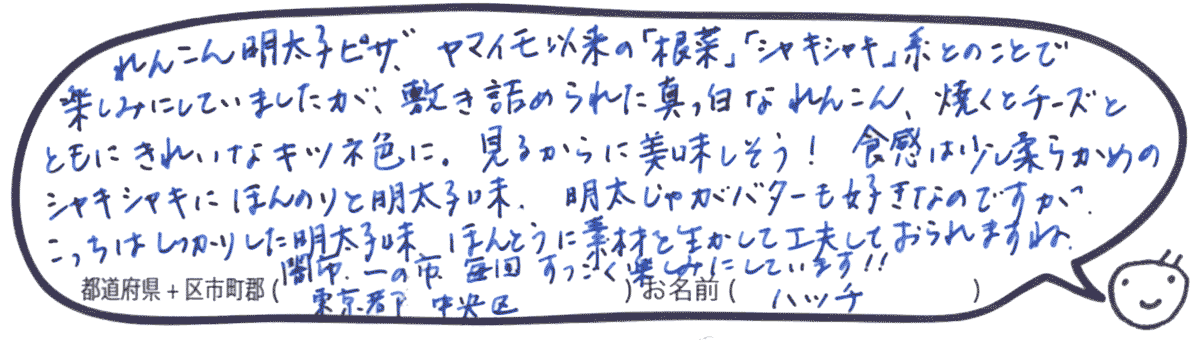 れんこん明太子ピザ、ヤマイモ以来の「根菜」「シャキシャキ」系とのことで
楽しみにしていましたが、敷き詰められた真っ白なれんこん、焼くとチーズと
ともにきれいなキツネ色に。見るからに美味しそう！ 食感は少し柔らかめの
シャキシャキにほんのりと明太子味。 明太じゃがバターも好きなのですが、
こっちはしっかりした明太子味。ほんとうに素材を生かして工夫しておられますね。
闇市、一の市、毎回すっごく楽しみにしています!!
都道府県+区市町郡( 東京都 中央区 ) お名前( ハッチ )